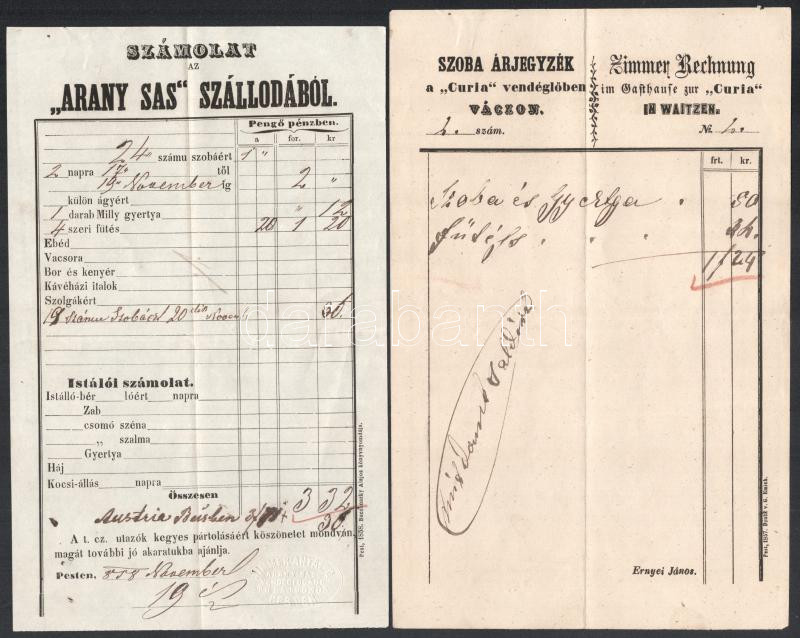 SZÁMOLAT
AZ
„ARANY SAS“ SZÁLLODÁBÓL.
Pengő pénzben.
a for. kr
24 számu szobáért 1 "
2 napra 17 től
19 November ig 2 "
külön ágyért
1 darab Milly gyertya " 12
4 szeri fütés 20 1 20
Ebéd
Vacsora
Bor és kenyér
Kávéházi italok
Szolgákért
19 Szobáért 20
Istálói számolat.
Istálló-bér lóért napra
Zab
csomó széna
„ szalma
Gyertya
Háj
Kocsi-állás napra
Összesen 3 32
Austria
A t. cz. utazók kegyes pártolásáért köszönetet mondván,
magát további jó akaratukba ajánlja.
Pesten, 858 November
19
Pest, 1858. Bucsánszky Alajos könyvnyomdája.
SZOBA ÁRJEGYZÉK
a „Curia“ vendéglőben
VÁCZON.
2. szám.
Zimmer Rechnung
im Gasthause zur „Curia“
IN WAITZEN.
№ 2.
frt. kr.
Szoba és Gyertya 80
Fűtés
1 24
Ernyei János.
Pest, 1857. Druck v. G. Emich.
darabanth